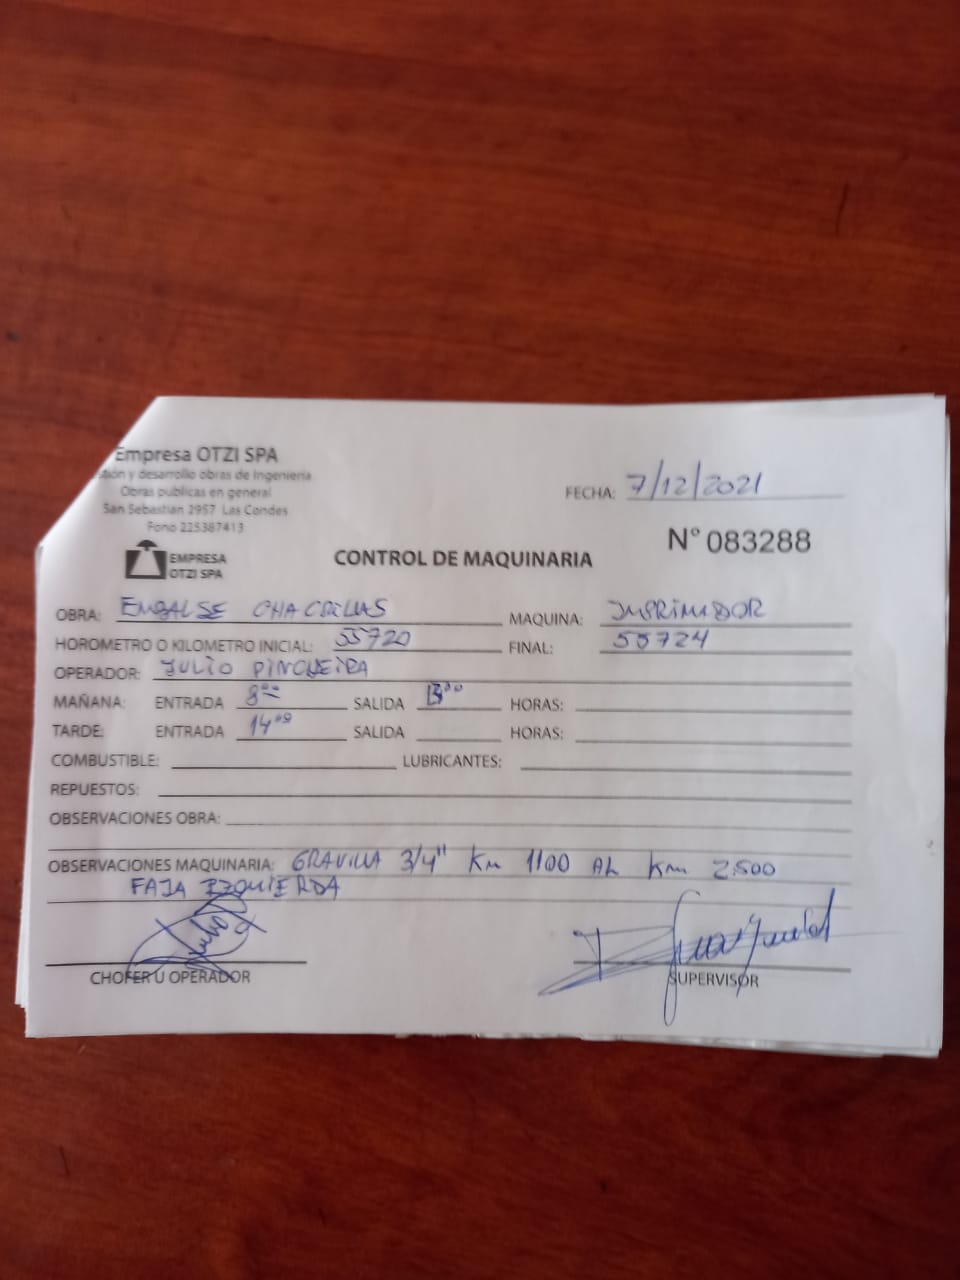 Empresa OTZI SPA
stión y desarrollo obras de Ingenieria
Obras publicas en general
San Sebastian 2957 Las Condes
Fono 225387413
FECHA: 7/12/2021
EMPRESA
OTZI SPA
CONTROL DE MAQUINARIA
N° 083288
OBRA: EMBALSE CHACRILLAS MAQUINA: IMPRIMADOR
HOROMETRO O KILOMETRO INICIAL: 55720 FINAL: 55724
OPERADOR: JULIO PINCHEIRA
MAÑANA: ENTRADA 8°° SALIDA 13°° HORAS:
TARDE: ENTRADA 14°° SALIDA HORAS:
COMBUSTIBLE: LUBRICANTES:
REPUESTOS:
OBSERVACIONES OBRA:
OBSERVACIONES MAQUINARIA: GRAVILLA 3/4" Km 1100 AL Km 2.500
FAJA IZQUIERDA
CHOFER U OPERADOR SUPERVISOR